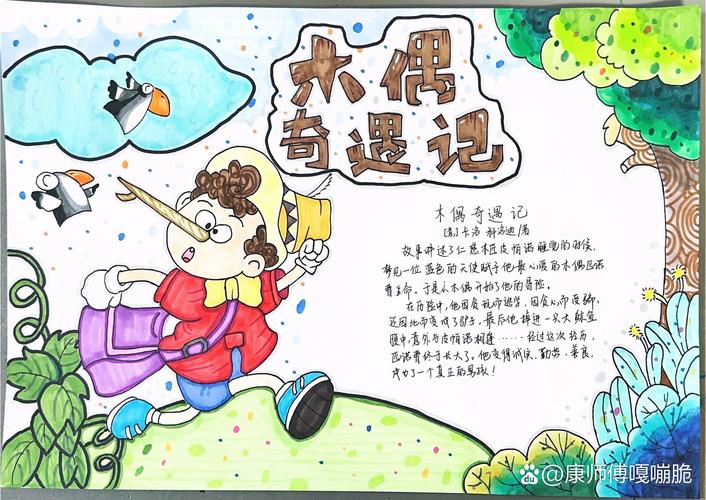 木偶
奇遇记
木偶奇遇记
[意]卡洛·科洛迪/著
故事讲述了仁慈木匠皮帕诺睡觉的时候,
梦见一位蓝色的天使赋予他最心爱的木偶匹诺
曹生命。于是小木偶开始了他的冒险。
在历险中,他因贪玩而逃学,因贪心而受骗,
还因此而变成了驴子。最后他掉进一只大鲸鱼
腹中,意外与皮帕诺相逢……经过这次经历,
匹诺曹终于长大了。他变得诚实、勤劳、善良,
成为了一个真正的男孩!
Bai du @康师傅嘎嘣脆